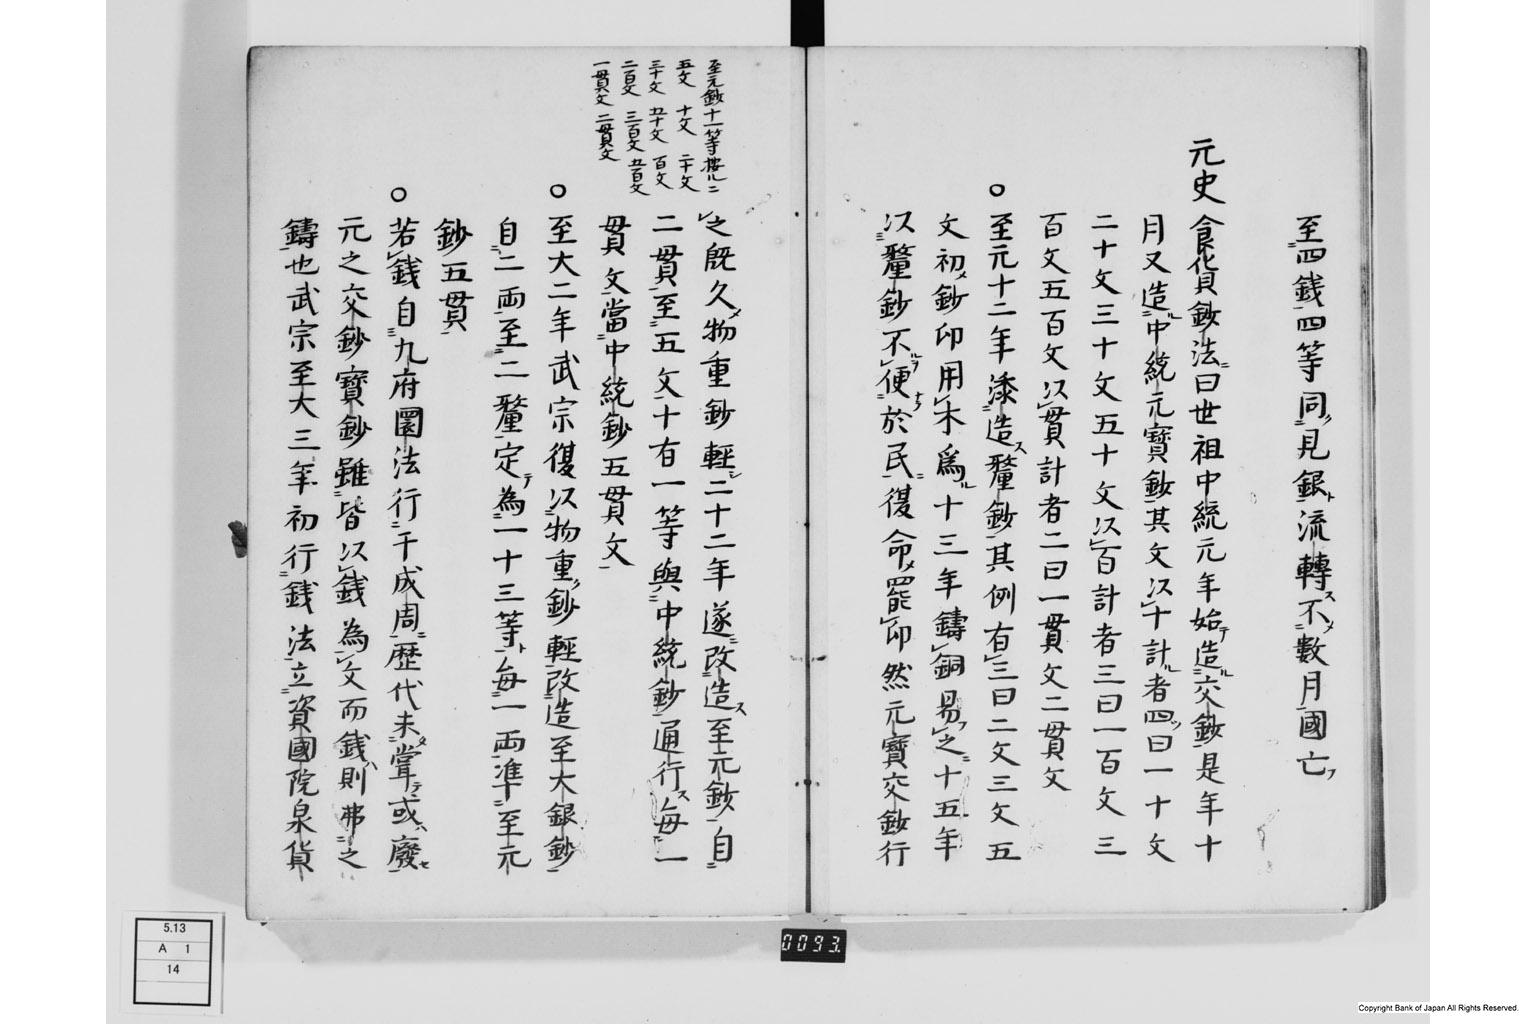 至四錢四等同見銀流轉不數月國亡
元史食貨鈔法曰世祖中統元年始造交鈔是年十
月又造中統元寶鈔其文以十計者四曰一十文
二十文三十文五十文以百計者三曰一百文三
百文五百文以貫計者二曰一貫文二貫文
○至元十二年添造釐鈔其例有三曰二文三文五
文初鈔印用木爲十三年鑄銅易之十五年
以釐鈔不便於民復命罷印然元寶交鈔行
至元鈔十一等
五文 十文 二十文
三十文 五十文 百文
二百文 三百文 五百文
一貫文 二貫文
之既久物重鈔輕二十二年遂改造至元鈔自
二貫至五文十有一等與中統鈔通行每一
貫文當中統鈔五貫文
○至大二年武宗復以物重鈔輕改造至大銀鈔
自二両至二釐定為一十三等每一両準至元
鈔五貫
○若錢自九府圜法行于成周歷代未嘗或廢
元之交鈔寶鈔雖皆以錢為文而錢則弗之
鑄也武宗至大三年初行錢法立資國院泉貨
5.13
A 1
14
0093
Copyright Bank of Japan All Rights Reserved.